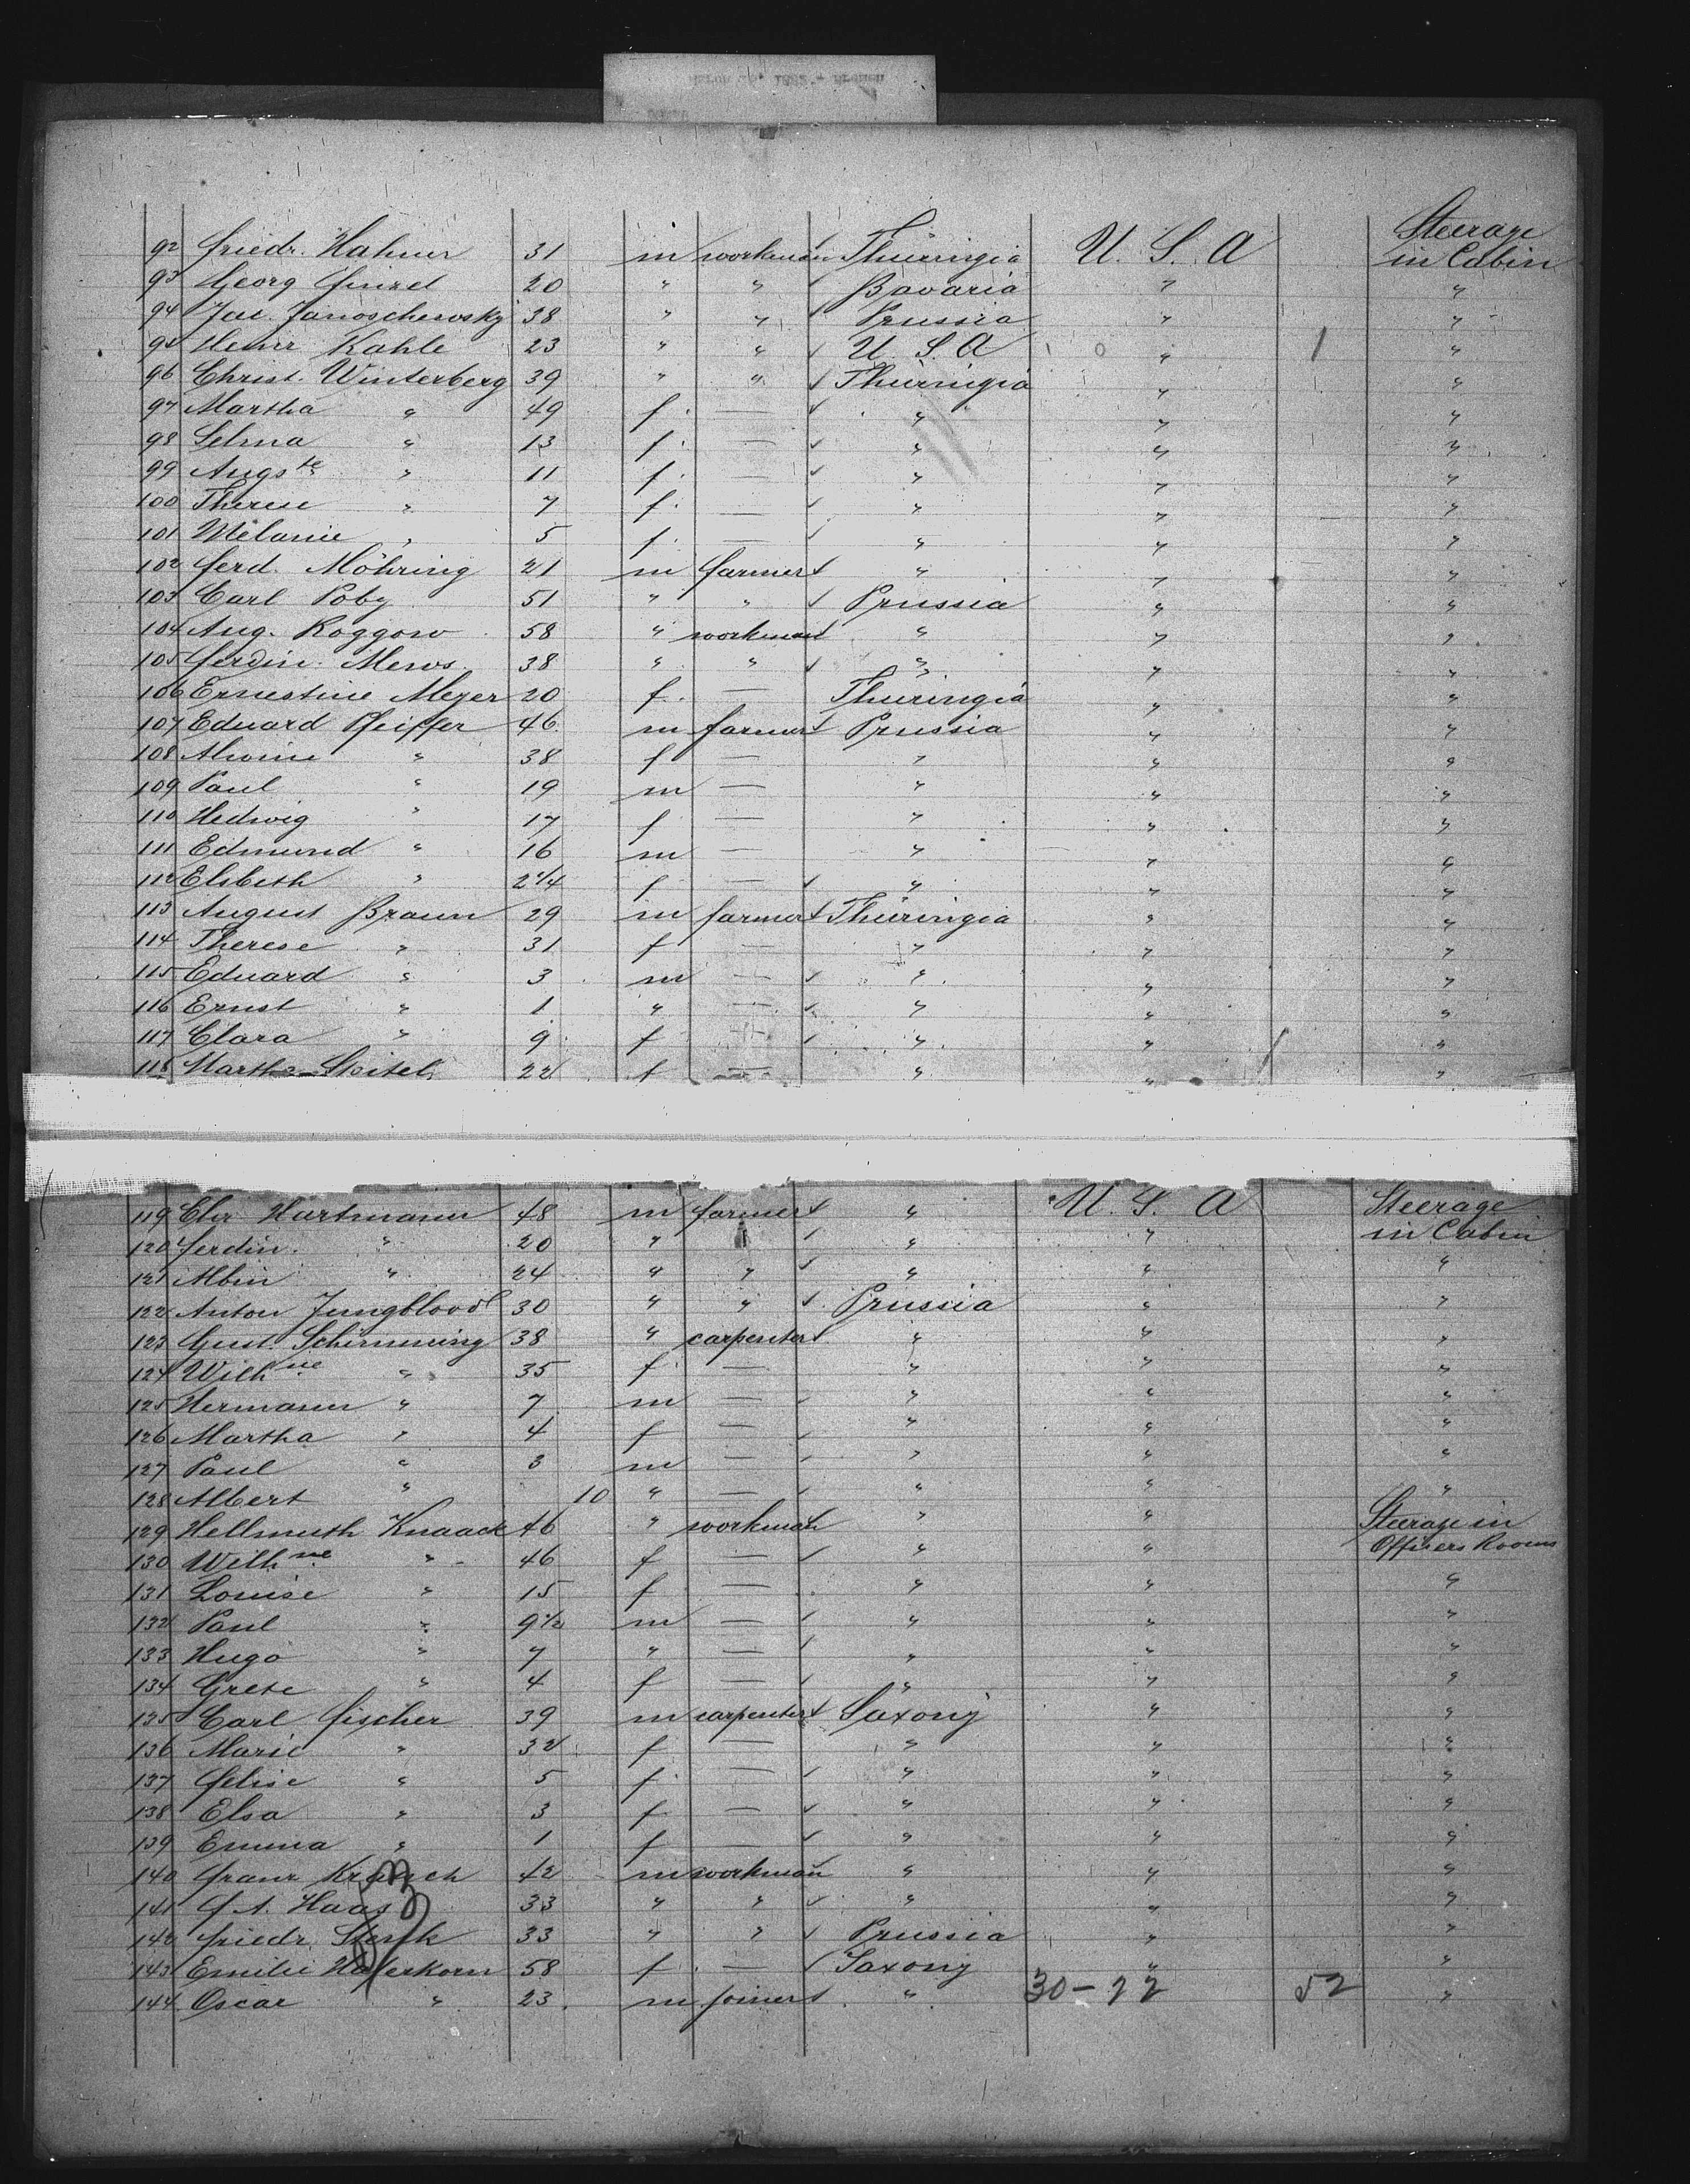 92 Friedr. Hahner 31 m workman Thuringia U. S. A Steerage in Cabin
93 Georg 20 " " Bavaria " "
94 Jac. Janoschewsky 38 " " Prussia " "
95 Heinr Kahle 23 " " U. S. A " 1 "
96 Christ. Winterberg 39 " " Thuringia " "
97 Martha " 49 f. — " " "
98 Selma " 13 f. — " " "
99 Augste " 11 f. — " " "
100 Therese " 7 f. — " " "
101 Melanie " 5 f. — " " "
102 Ferd. Möhring 21 m farmer " " "
103 Carl Poby 51 " " Prussia " "
104 Aug. Roggow 58 " workman " " "
105 Ferdin. Mews 38 " " " " "
106 Ernestine Meyer 20 f. — Thuringia " "
107 Eduard Pfeiffer 46 m farmer Prussia " "
108 Alwine " 38 f — " " "
109 Paul " 19 m — " " "
110 Hedwig " 17 f — " " "
111 Edmund " 16 m — " " "
112 Elsbeth " 2 1/4 f — " " "
113 August Braun 29 m farmer Thuringia " "
114 Therese " 31 f — " " "
115 Eduard " 3 m — " " "
116 Ernst " 1 " — " " "
117 Clara " 9 f — " " "
118 Martha 22 f — " " "
119 Chr Hartmann 48 m farmer " U. S. A Steerage in Cabin
120 Ferdin. " 20 " " " "
121 Albin " 24 " " " " "
122 Anton Jungblood 30 " " Prussia " "
123 Gust. Schimming 38 " carpenter " " "
124 Wilhne " 35 f — " " "
125 Hermann " 7 m — " " "
126 Martha " 4 f — " " "
127 Paul " 3 m — " " "
128 Albert " 10 " — " " "
129 Hellmuth Knaack 46 " workman " " Steerage in Officers Rooms
130 Wilhne " 46 f — " "
131 Louise " 15 f — " " "
132 Paul " 9 1/2 m — " " "
133 Hugo " 7 " — " " "
134 Grete " 4 f — " " "
135 Carl Fischer 39 m carpenter Saxony " "
136 Marie " 32 f — " " "
137 Felise " 5 f. — " " "
138 Elsa " 3 f — " " "
139 Emma " 1 f — " " "
140 Franz 42 m workman " " "
141 Haas 33 " " " " "
142 Friedr. 33 " " Prussia " "
143 Emilie Haferkorn 58 f. — Saxony " "
144 Oscar " 23 m joiner " 30-22 52 "